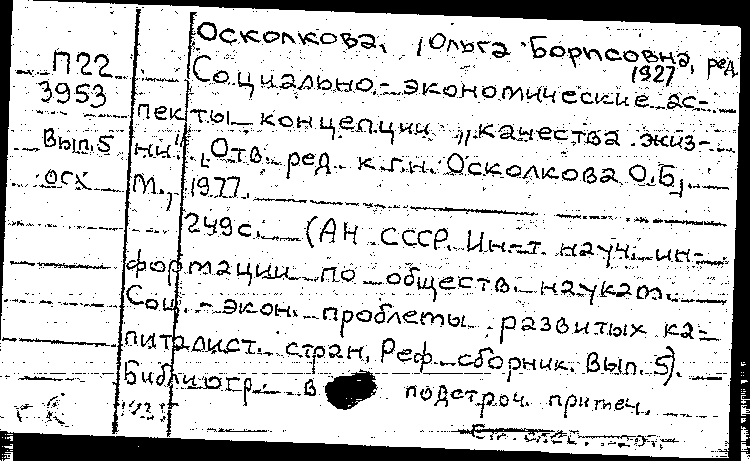 Осколкова, Ольга Борисовна, ред.
1927
П22
3953
Вып.5
осх
Социально-экономические ас-
пекты концепции „качества жиз-
ни". Отв. ред. к.г.н. Осколкова О.Б.
М., 1977.
249с. (АН СССР. Ин-т. науч. ин-
формации по обществ. наукам.
Соц.-экон. проблемы развитых ка-
питалист. стран, Реф. сборник. Вып. 5).
Библиогр. в подстроч. примеч.